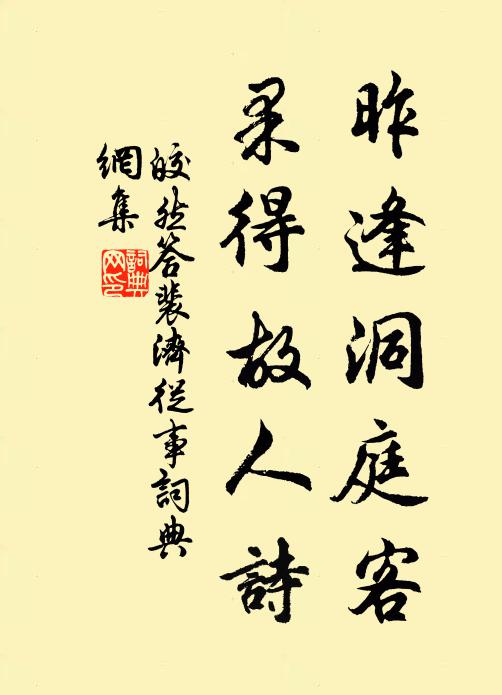 昨逢洞庭客
果得故人詩
皎然答裴濟從事詞典
網集
詞典網印